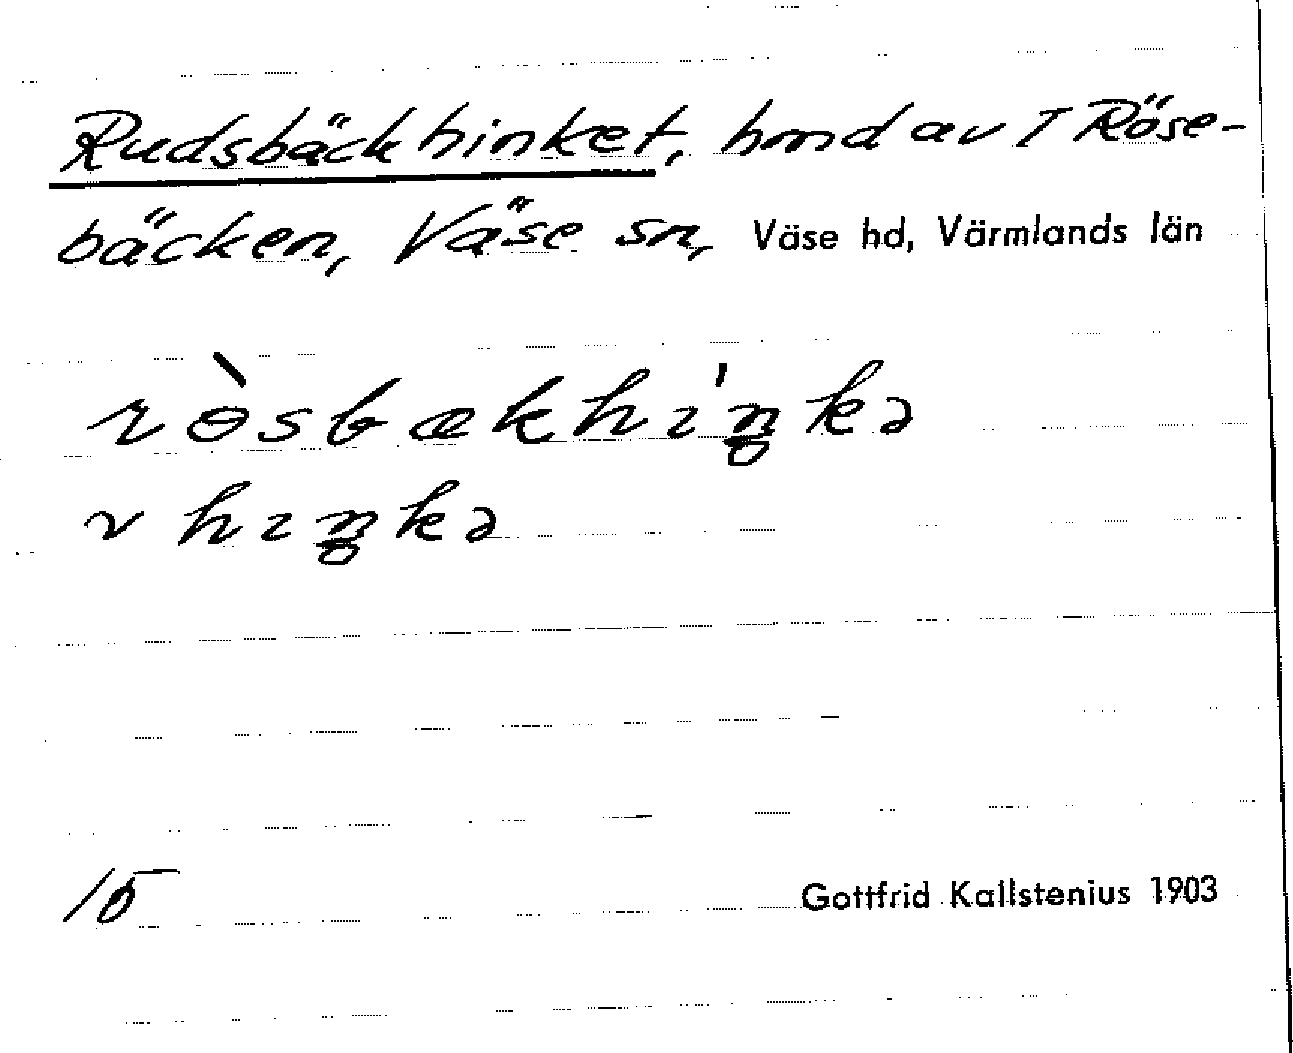 Rudsbäckhinket, hmd av T Röse-
bäcken, Väse sn, Väse hd, Värmlands län
rɵ̀sbækhıˈŋkə
v hıŋkə
15
Gottfrid Kallstenius 1903